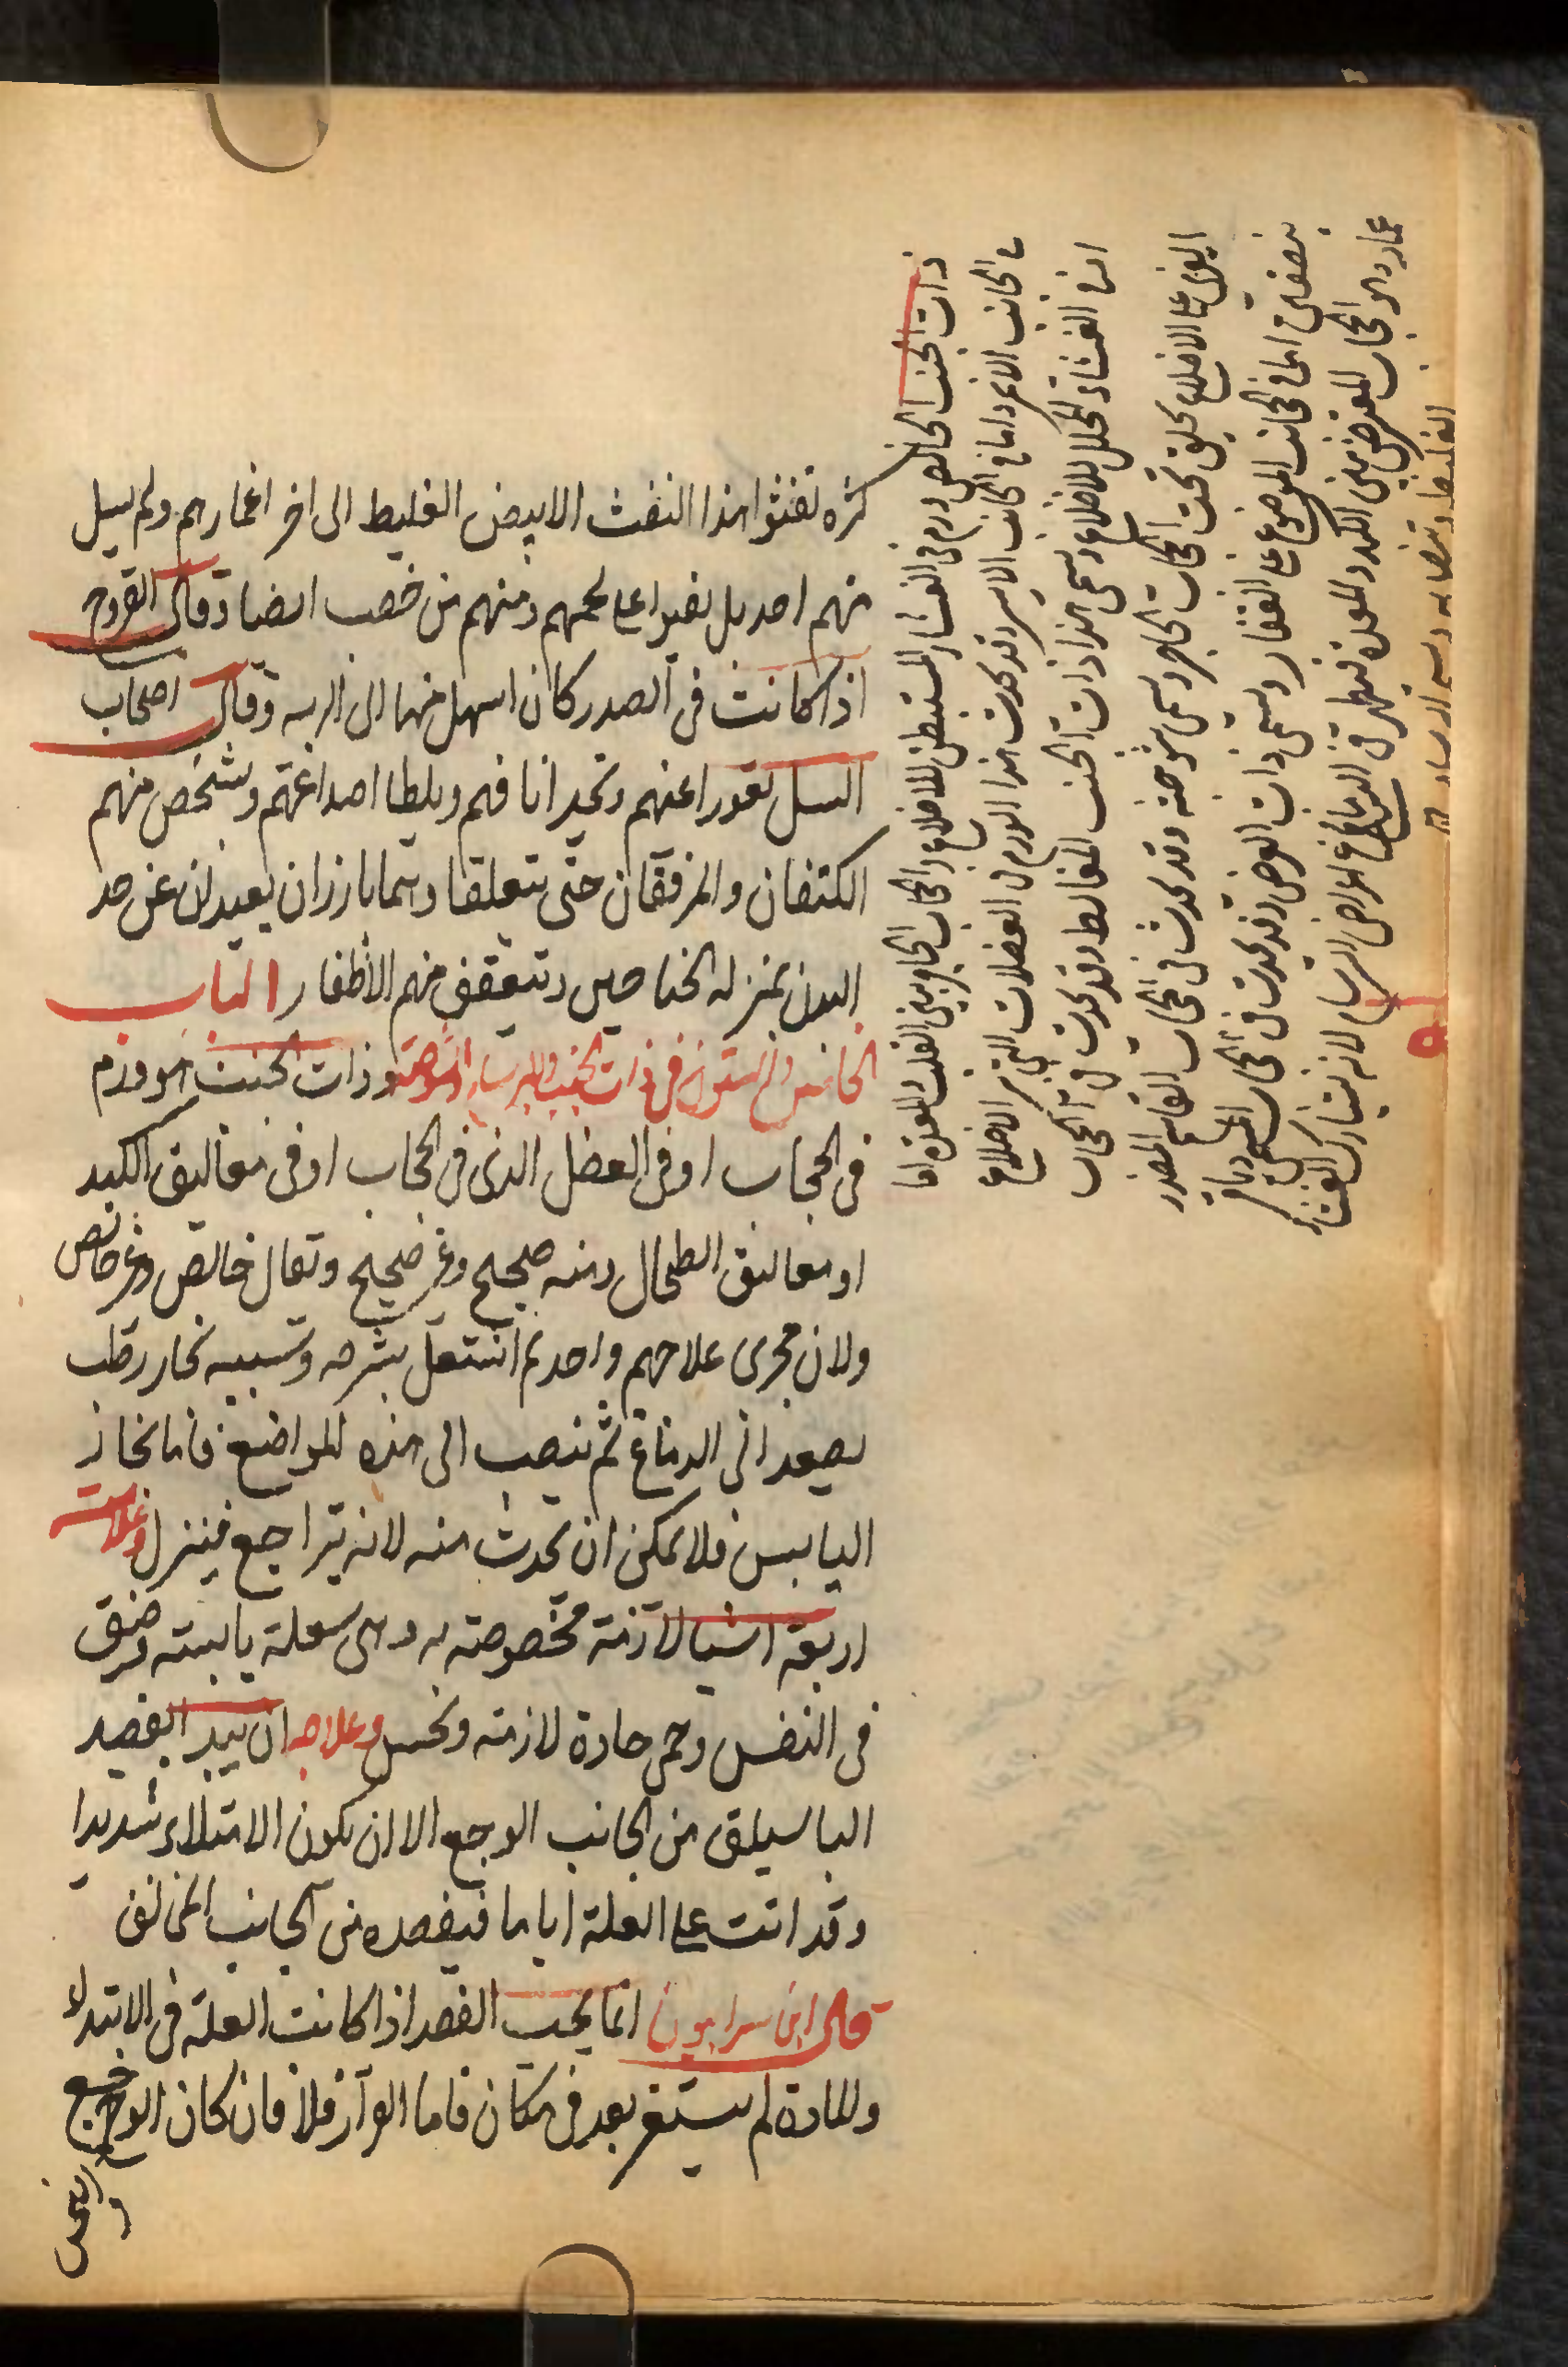 كثره تفثوا هذا النفث الابيض الغليط الى اخر اعمارهم ولم يسل
منهم احد بل نفيوا على لحمهم ومنهم من خصب ايضا وقال القروح
اذا كانت فى الصدر كان اسهل منها الى الريه وقال اصحاب
السل تغور اعينهم وتحد انافهم ويلطا اصداغهم وشخص منهم
الكتفان والمرفقان حتى يتعلقا وهما بارزان بعيدان عن حد
البدن بمنزله الجناحين وتتعقف منهم الاظفار الباب
الخامس والستون فى ذات الجنب والبرسام والشوصة وذات الجنب هو ورم
فى الحجاب او فى العضل الذى فى الحجاب او فى معاليق الكبد
او معاليق الطحال ومنه صحيح وغير صحيح وتقال خالص وغير خالص
ولان مجرى علاجهم واحد لم اشتغل بشرحه وسببه بخار رطب
يصعد الى الدماغ ثم ينصب الى هذه المواضع فاما بخار
اليابس فلا يمكن ان يحدث منه لانه يتراجع فينزل وعلامت
اربعة اشيا لازمة مخصوصة به وهى سعلة يابسته وضيق
فى النفس وحمى حادة لازمته ونخس وعلاجه ان يبدا بفصد
الباسيلق من الجانب الوجع الا ان يكون الامتلاء شديدا
وقد اتت على العلة اياما فيفصده من الجانب المخالف
قال ابن سرابيون انما يجب الفصد اذا كانت العلة فى الابتداء
والمادة لم يستقر بعد فى مكان فاما الوآز فلا فان كان الوجع
ذات الجنب الخالص ورم فى الغشاء المستبطن للاضلاع والحجاب الحاجز بين القلب والمعدة اما
فى الجانب الايمن واما فى الجانب الايسر وقد يحدث هذا الورم فى العضلات التى بين الاضلاع
او فى الغشاء المجلل للاضلاع وسمى هذا ذات الجنب المغالط وقد يحدث فى الحجاب
الذى على الاضلاع تحت الحجاب الحاجز وسمى شوصة وقد يحدث فى الحجاب القاسم للصدر
بنصفين اما فى الجانب الموضوع على الفقار وسمى ذات العرض وقد يحدث فى الحجاب
عماد وهو الحجاب المعترض بين الكبد والمعدة فيظهر فى الدماغ اعراض السرسام لانه يشارك الغشاء